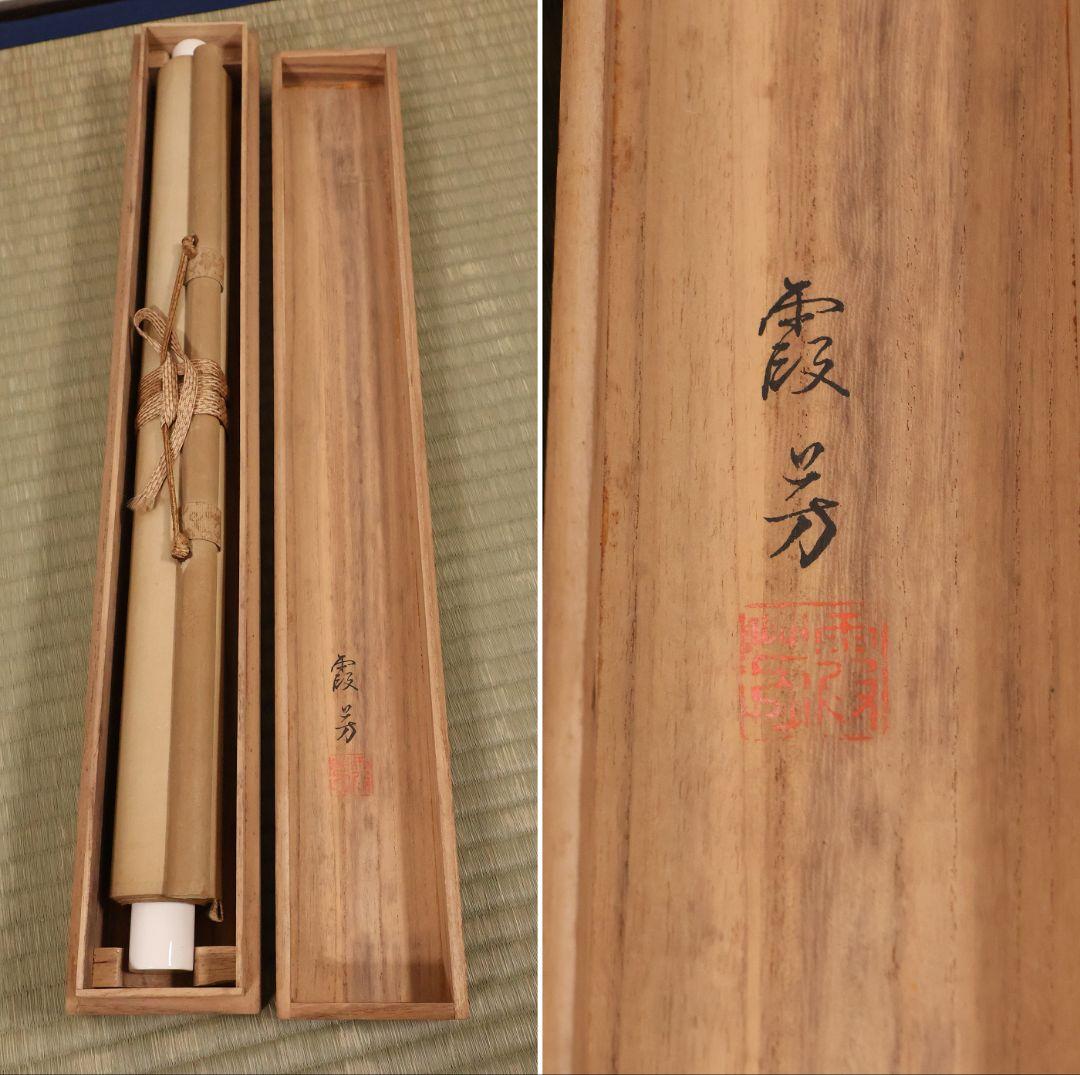 霞芳
霞芳